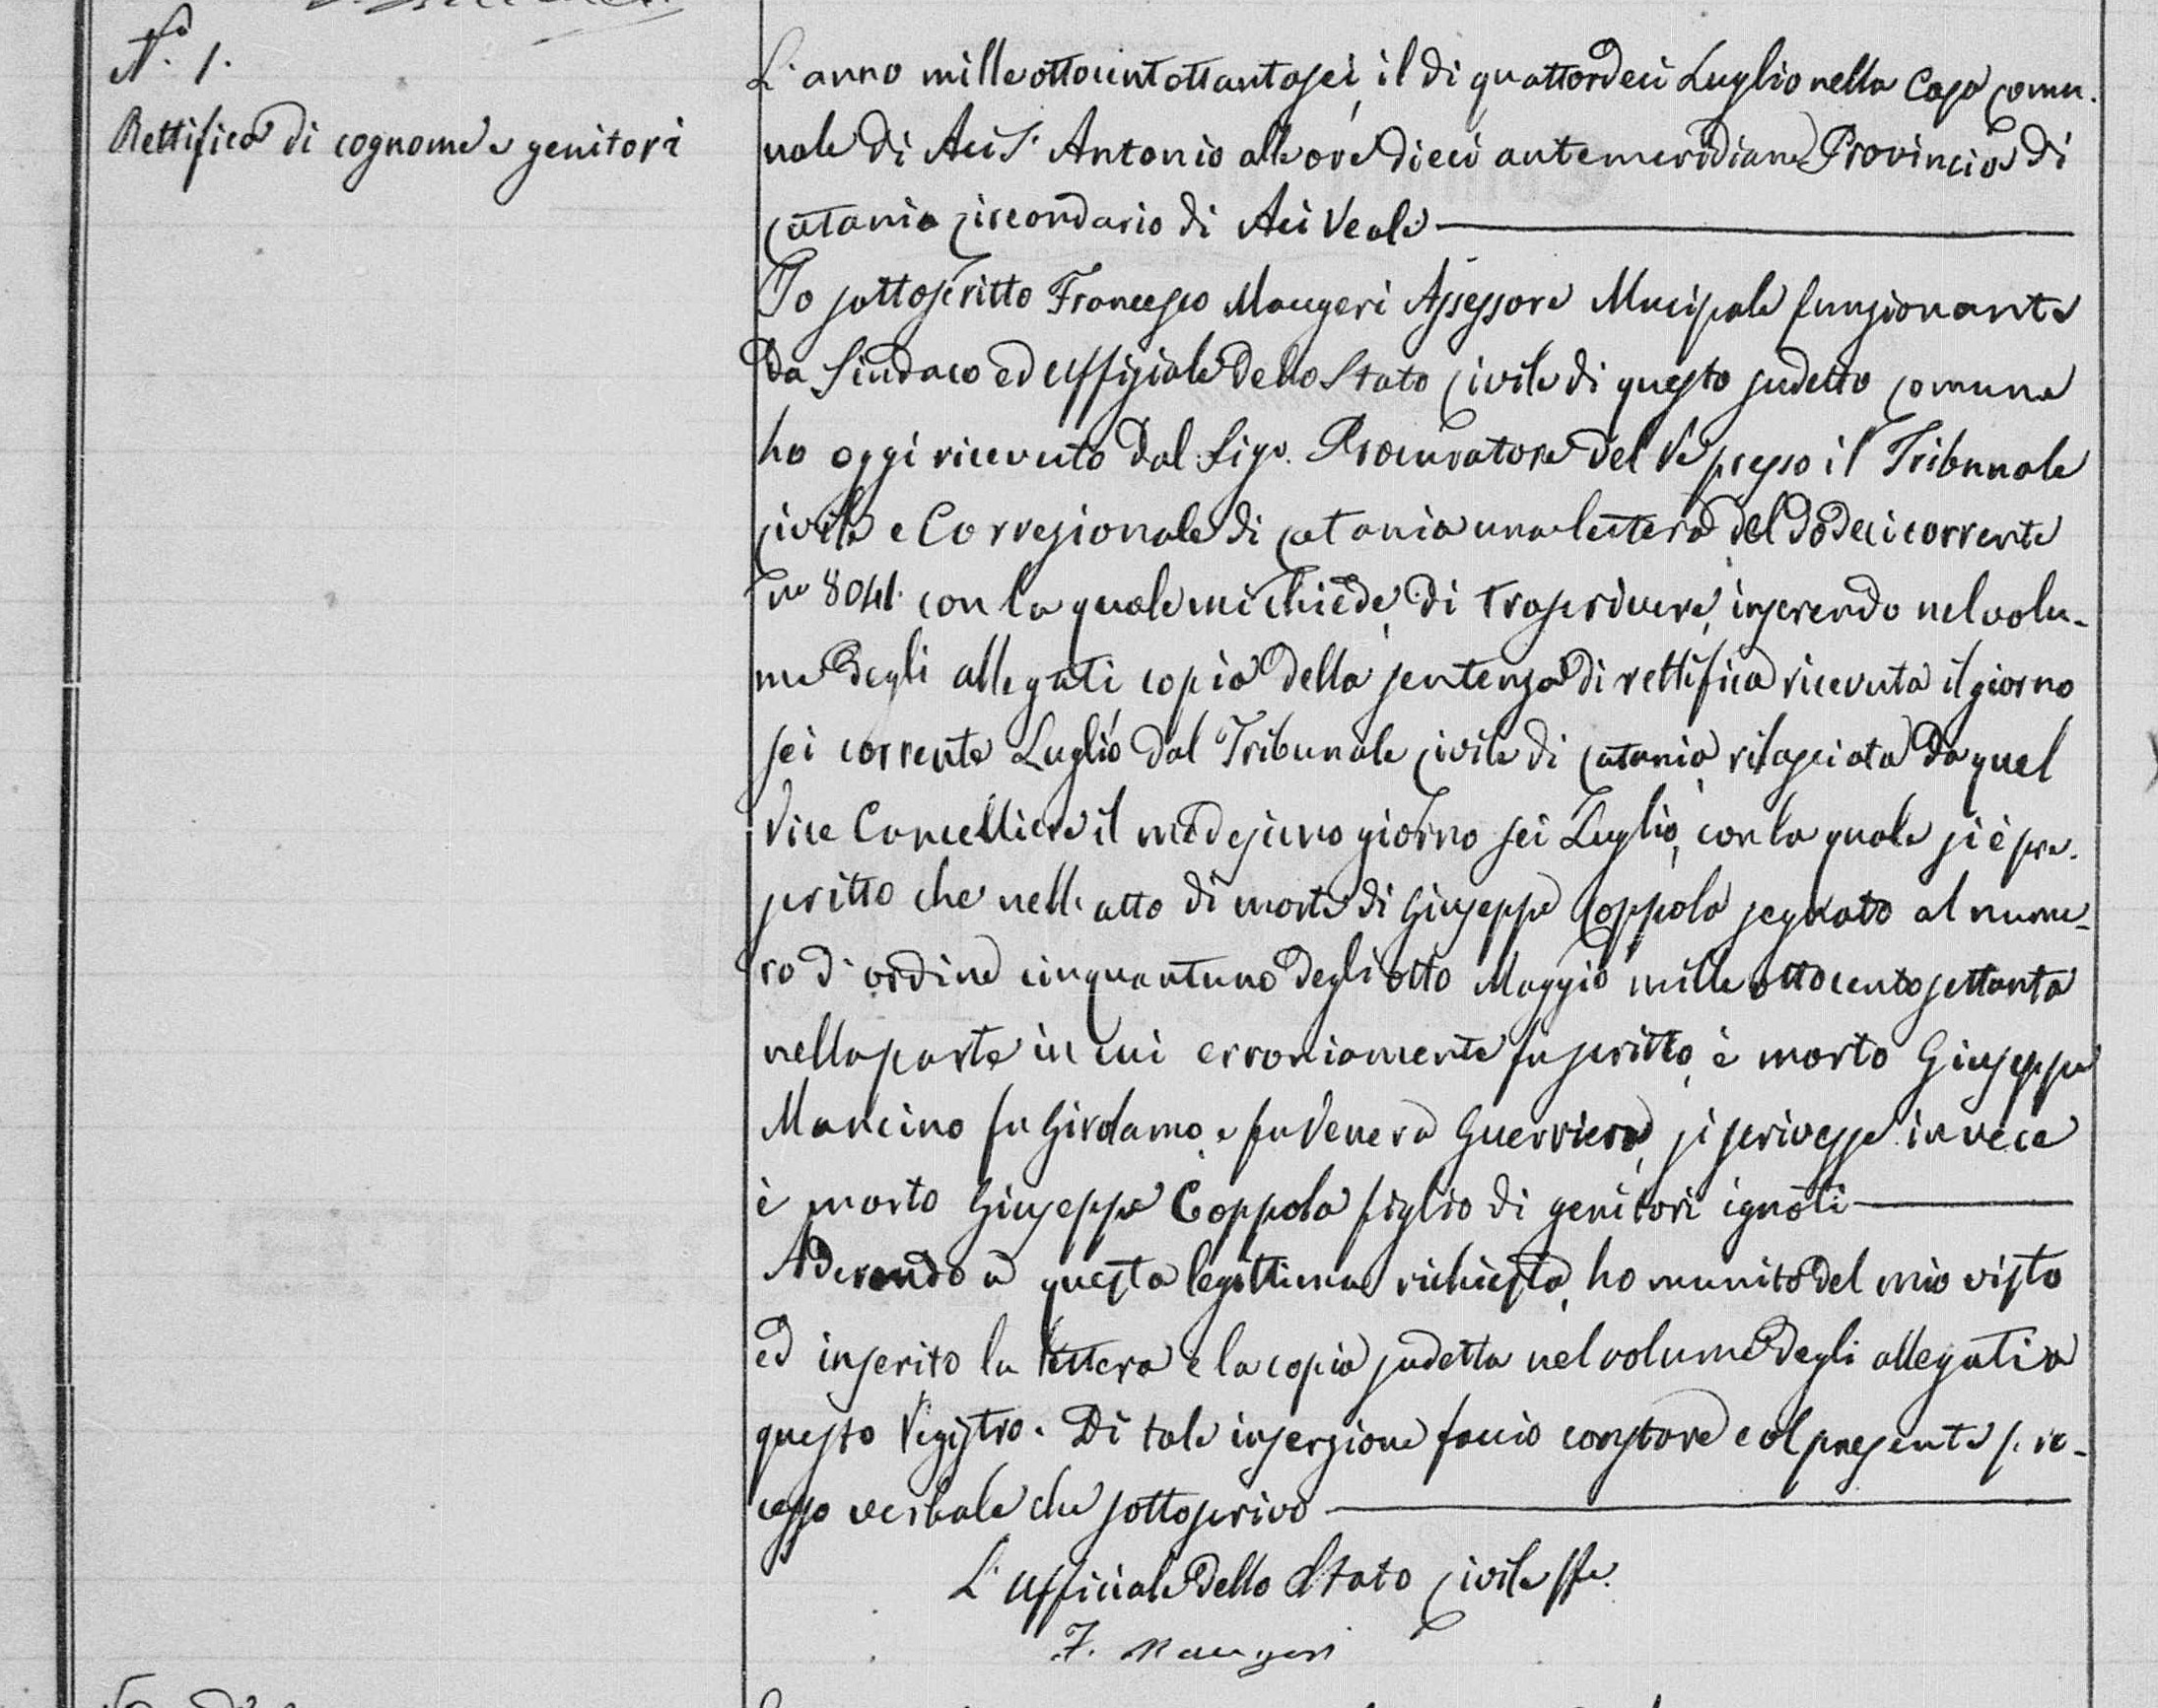 N.º 1.
Rettifica di cognome e genitori
L'anno milleottocentottantasei, il di quattordeci Luglio nella Casa comu-
nale di Aci S. Antonio alle ore dieci antemeridiane Provincia di
Catania Circondario di Aci Reale
Io sottoscritto Francesco Maugeri Assessore Mucipale funzionante
da Sindaco ed Uffiziale dello Stato Civile di questo sudetto Comune
ho oggi ricevuto dal Sigr. Procuratore del Re presso il Tribunale
Civile e Correzionale di Catania una lettera del dodeci corrente
Nº 8041. con la quale mi chiede, di trascrivere, inserendo nel volu-
me degli allegati copia della sentenza di rettifica ricevuta il giorno
sei corrente Luglio dal Tribunale Civile di Catania, rilasciata da quel
Vice Cancelliere il medesimo giorno sei Luglio, con la quale si è pre-
scritto che nell'atto di morte di Giuseppe Coppola segnato al nume-
ro d'ordine cinquantuno degli otto Maggio mille ottocentosettanta
nella parte in cui erroniamente fu scritto, è morto Giuseppe
Mancino fu Girolamo, e fu Venera Guerriera, si scrivesse invece
è morto Giuseppe Coppola figlio di genitori ignoti
Aderendo a questa legittima richiesta, ho munito del mio visto
ed inserito la lettera e la copia sudetta nel volume degli allegati a
questo Registro. Di tale inserzione faccio constare col presente pro-
cesso verbale che sottoscrivo
L'Ufficiale dello Stato Civile ff.
F. Maugeri